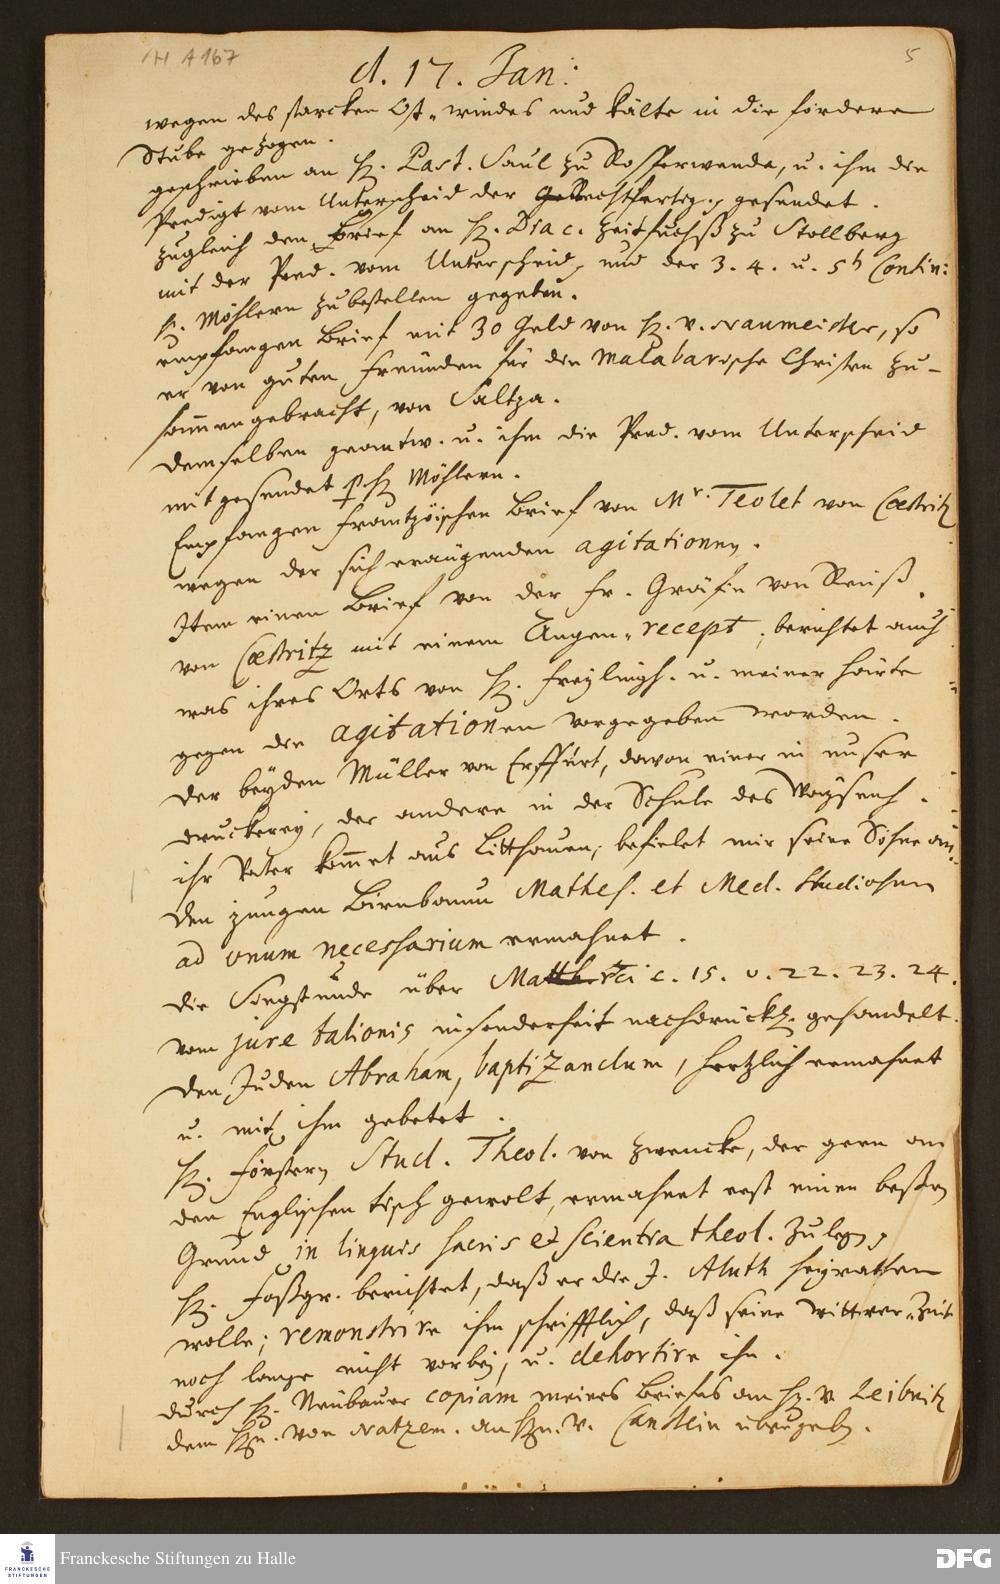 H A 167
5
d. 17. Jan:
wegen des starcken Ost-windes und kälte in die fördere
Stube gezogen.
geschrieben an H. Past. Saul zu Rosserwenda, u. ihm die
Predigt vom Unterscheid der gesendet.
zugleich den Brief an H. Diac. Zeitfuchß zu Stollberg
mit der Pred. vom Unterscheid, und der 3. 4. u. 5t Contin:
H. Möhlern zubestellen gegeben.
empfangen Brief mit 30 Geld von H. v. Naumeister, so
er von guten Freunden für die Malabarische Christen zu-
sammengebracht, von Saltza.
demselben geantw. u. ihm die Pred. vom Unterscheid
mitgesendet p H Möhlern.
Empfangen Frantzöischen Brief von Mr. Teolet von Cöstritz
wegen der sich eräugenden agitationen.
Item einen Brief von der Fr. Gräfin von Reuß
von Cöstritz mit einem Augen-recept; berichtet auch
was ihres Orts von H. Freylingh. u. meiner härte
gegen die agitationen vorgegeben worden.
Der beyden Müller von Erffurt, davon einer in unser
druckerey, der andere in der Schule des Waysenh.
ihr Vater kommet aus Litthauen, befielet mir seine Söhne an.
Den jungen Birnbaum Mathes. et Med. Studiosum
ad unum necessarium ermahnet.
die Singstunde über Matthaei c. 15. v. 22. 23. 24.
vom jure talionis insonderheit nachdrückl. gehandelt.
Den Juden Abraham, baptizandum, hertzlich ermahnet
u. mit ihm gebetet.
H. Förstern Stud. Theol. von Zwencke, der gern an
den Englischen tisch gewolt, ermahnet erst einen besten
Grund in linguis sacris et scientia theol. zu legen,
H. Foßgr. berichtet, daß er die J. Aluth heyrathen
wolle; remonstrire ihm schrifftlich, daß seine wittwer-Zeit
noch lange nicht vorbey, u. dehortire ihn.
durch H. Neubauer copiam meines Briefes an H. v. Leibnitz
dem Hn. von Natzem. an Hn. v. Canstein übergeben.
FRANCKESCHE STIFTUNGEN
Franckesche Stiftungen zu Halle
DFG